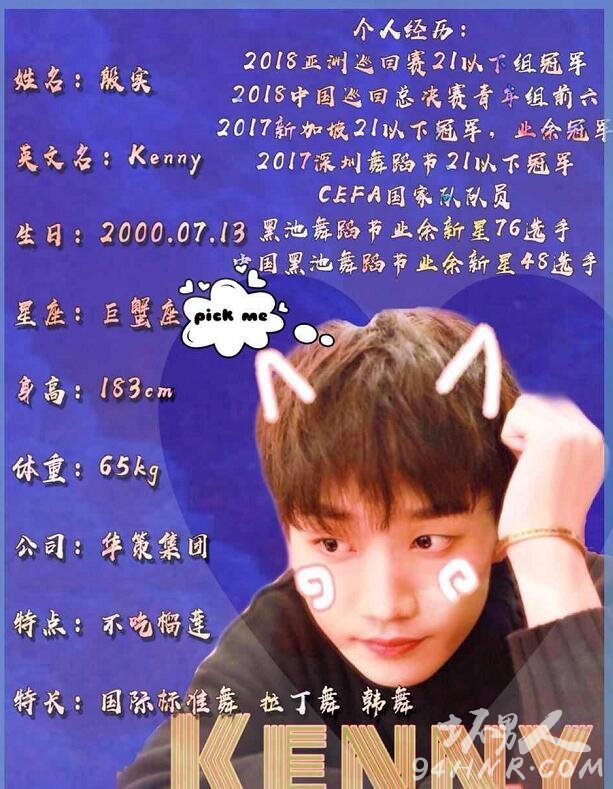 个人经历:
2018亚洲巡回赛21以下组冠军
2018中国巡回总决赛青年组前六
2017新加坡21以下冠军，业余冠军
2017深圳舞蹈节21以下冠军
CEFA国家队队员
黑池舞蹈节业余新星76选手
中国黑池舞蹈节业余新星48选手
姓名: 殷实
英文名: Kenny
生日: 2000.07.13
星座: 巨蟹座
pick me
身高: 183cm
体重: 65kg
公司: 华策集团
特点: 不吃榴莲
特长: 国际标准舞 拉丁舞 韩舞
KENNY
坏男人
94HNR.COM